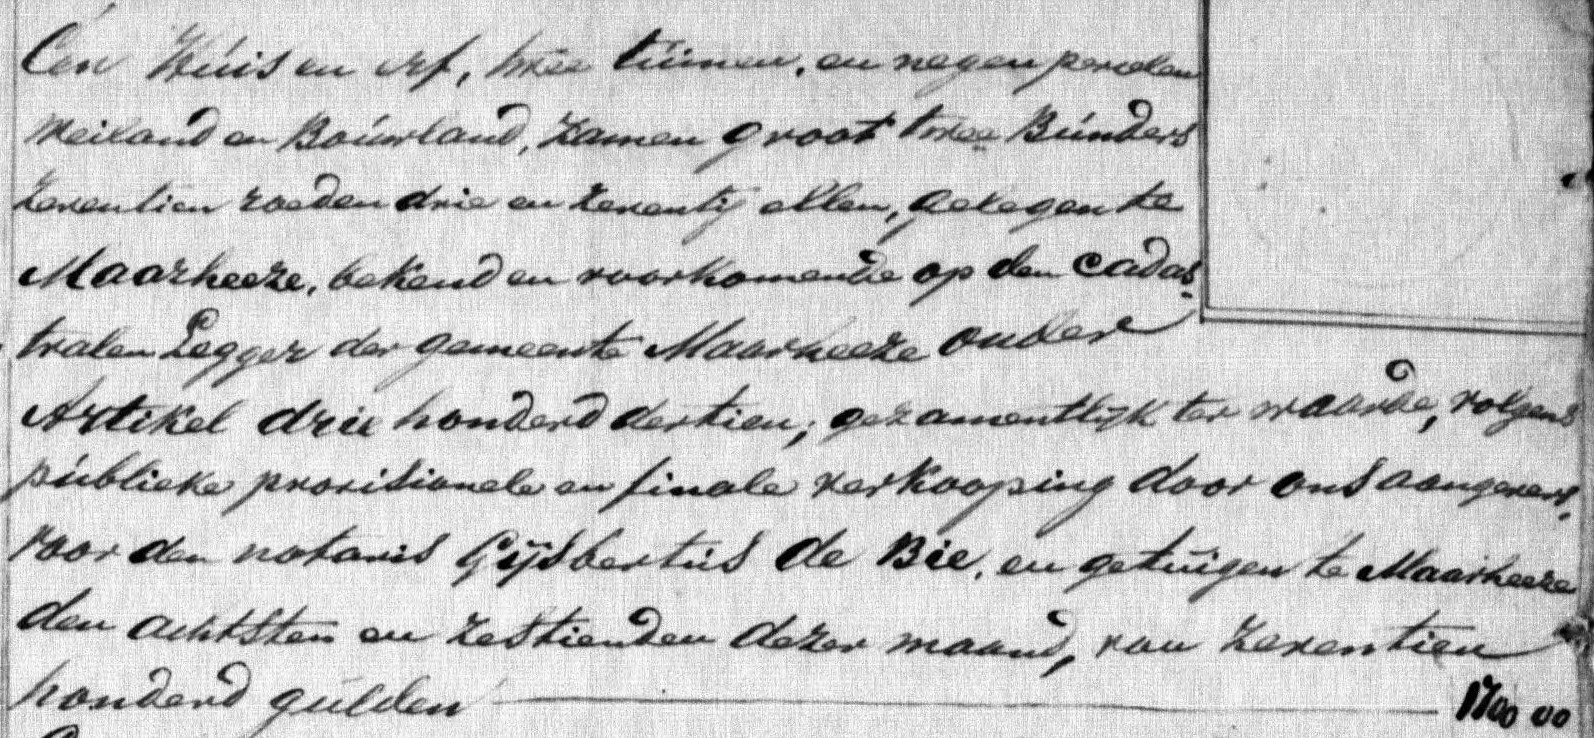 Een Huis en erf, twee tuinen, en negen perceelen
weiland en Bouwland, zamen groot twee Bunders
zeventien roeden drie en zeventig ellen, gelegen te
Maarheeze, bekend en voorkomende op den Cadas-
tralen Legger der gemeente Maarheeze onder
Artikel drie honderd dertien, gezamentlijk ter waarde, volgens
publieke provisionele en finale verkooping door ons aangevers,
voor den notaris Gijsbertus de Bie, en getuigen te Maarheeze
den achtsten en zestienden dezer maand, van zeventien
honderd gulden 1700 00